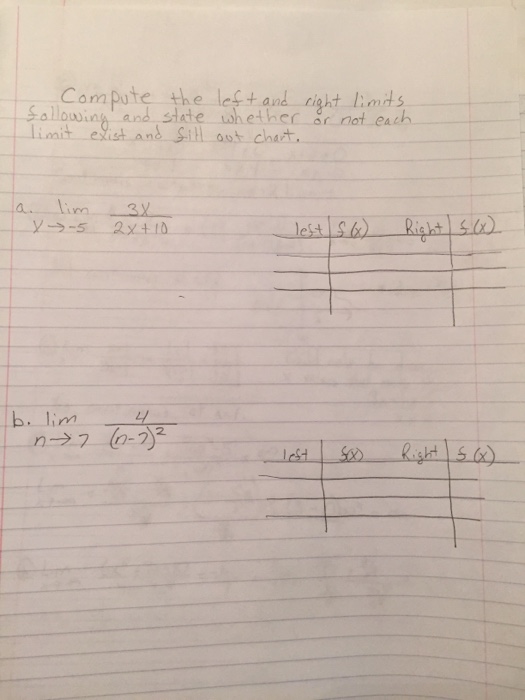 Compute the left and right limits
following and state whether or not each
limit exist and fill out chart.
a. lim 3x
x→-5 2x+10
left f(x) Right f(x)
b. lim 4
n→7 (n-7)²
left f(x) Right f(x)